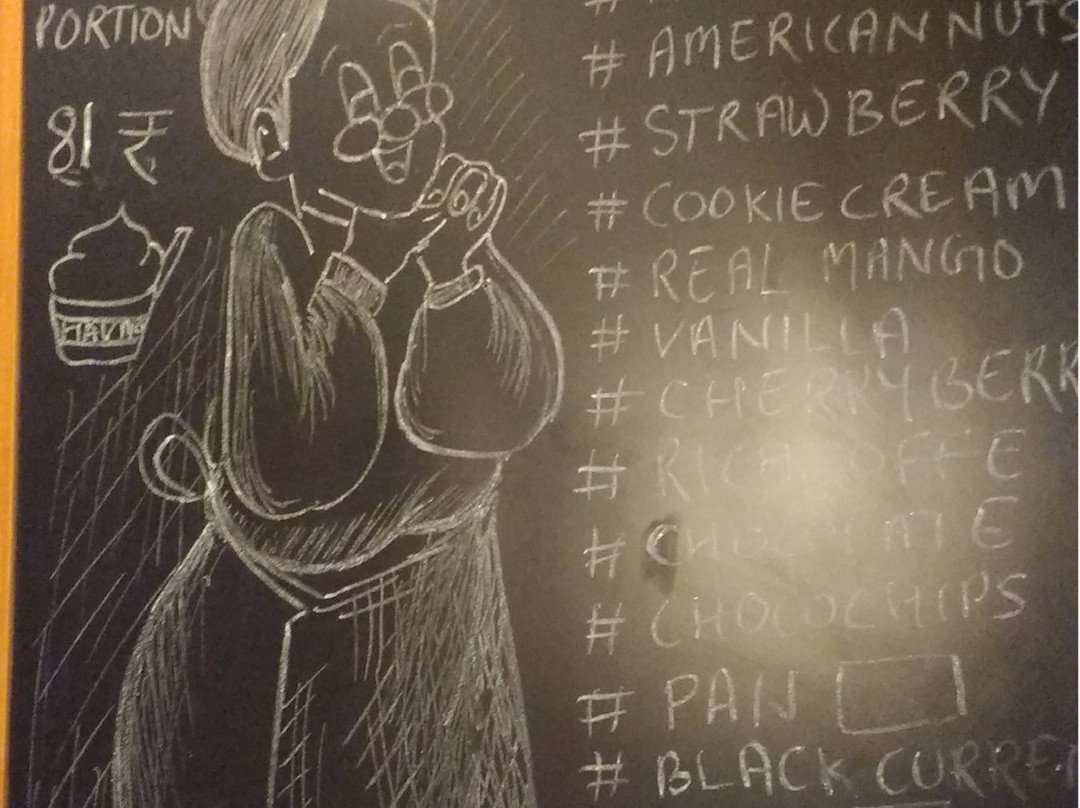 PORTION
81 रु
HAVMO
# AMERICAN NUTS
# STRAWBERRY
# COOKIE CREAM
# REAL MANGO
# VANILLA
# CHERRY BERR
# RICH OFFE
# CHOCOLATE
# CHOCOCHIPS
# PAN
# BLACK CURRE